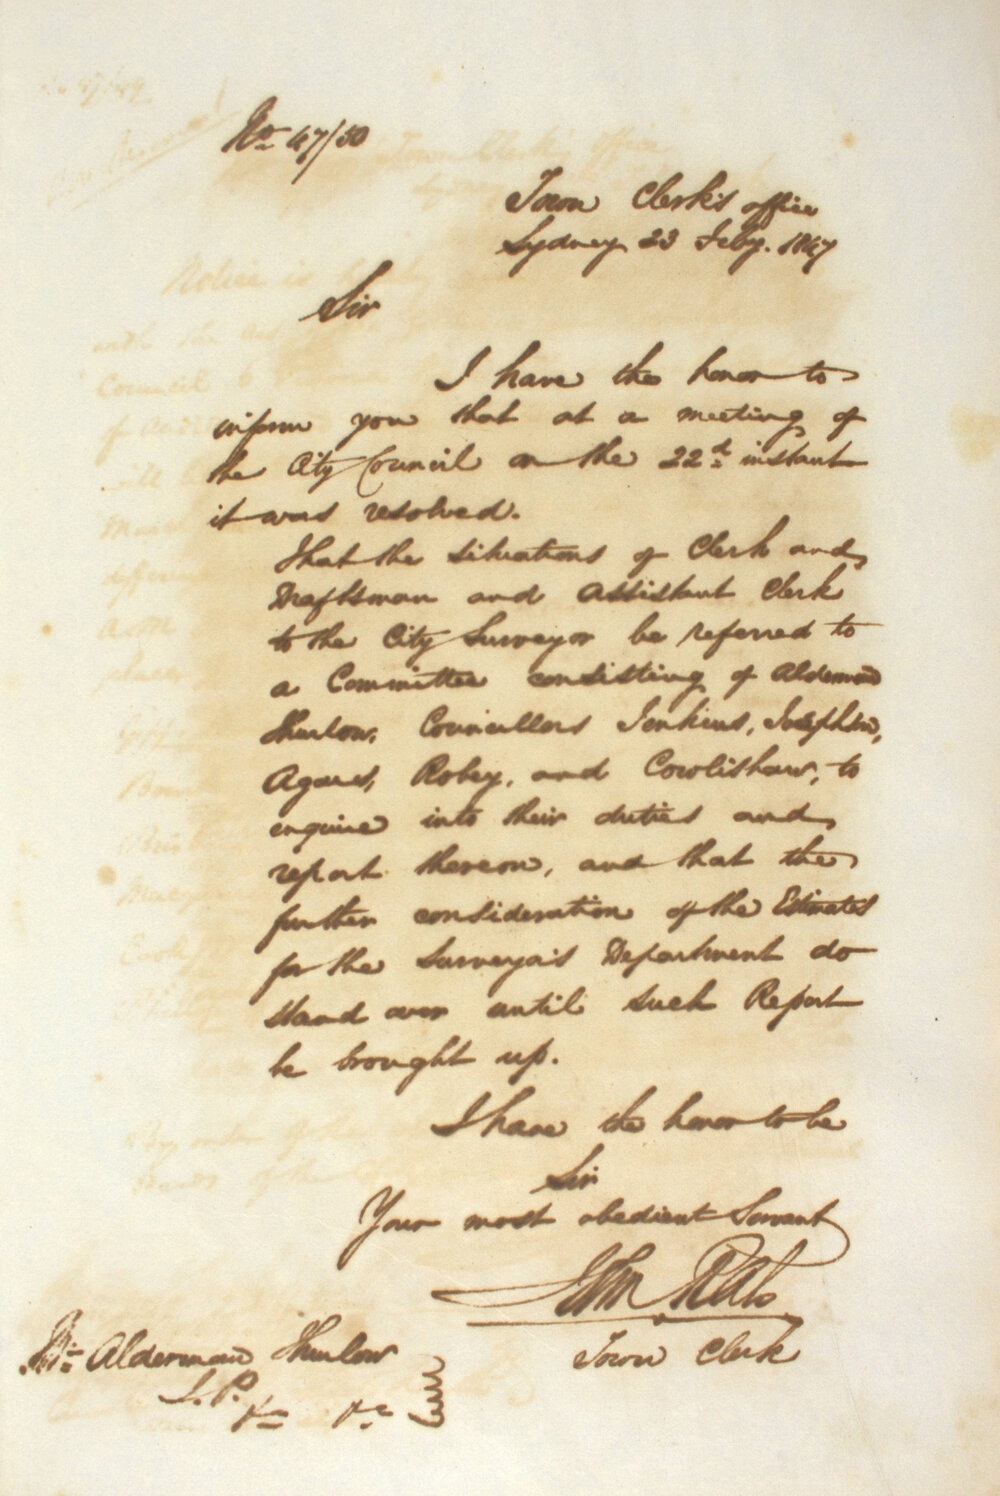 No. 47/50
Town Clerk's office
Sydney 23 Feby. 1847
Sir
I have the honor to
inform you that at a meeting of
the City Council on the 22d instant
it was resolved.
That the situations of Clerk and
Draftsman and Assistant Clerk
to the City Surveyor be referred to
a Committee consisting of Alderman
Thurlow, Councillors Jenkins, Josephson,
Agars, Robey, and Cowlishaw, to
enquire into their duties and
report thereon, and that the
further consideration of the Estimates
for the Surveyor's Department do
stand over until such Report
be brought up.
I have the honor to be
Sir
Your most obedient Servant
John Rae
Town Clerk
Mr. Alderman Thurlow
J.P.